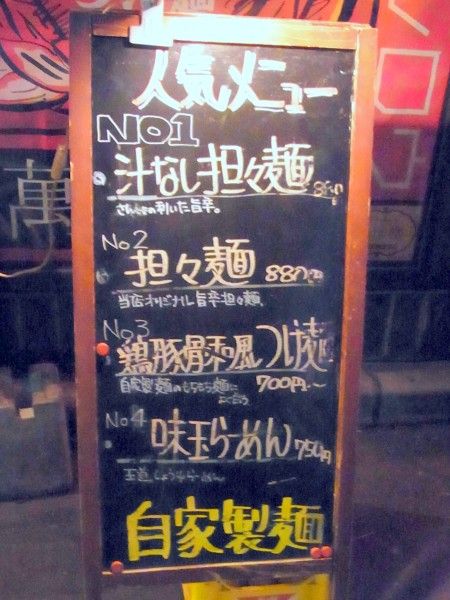 人気メニュー
No1
汁なし担々麺
の利いた旨辛。
No2
担々麺 880円
当店オリジナル旨辛担々麺。
No3
鶏豚骨和風つけそば
自家製麺のもちもち麺に 700円〜
No4
味玉らーめん 750円
王道しょうゆらーめん
自家製麺
萬